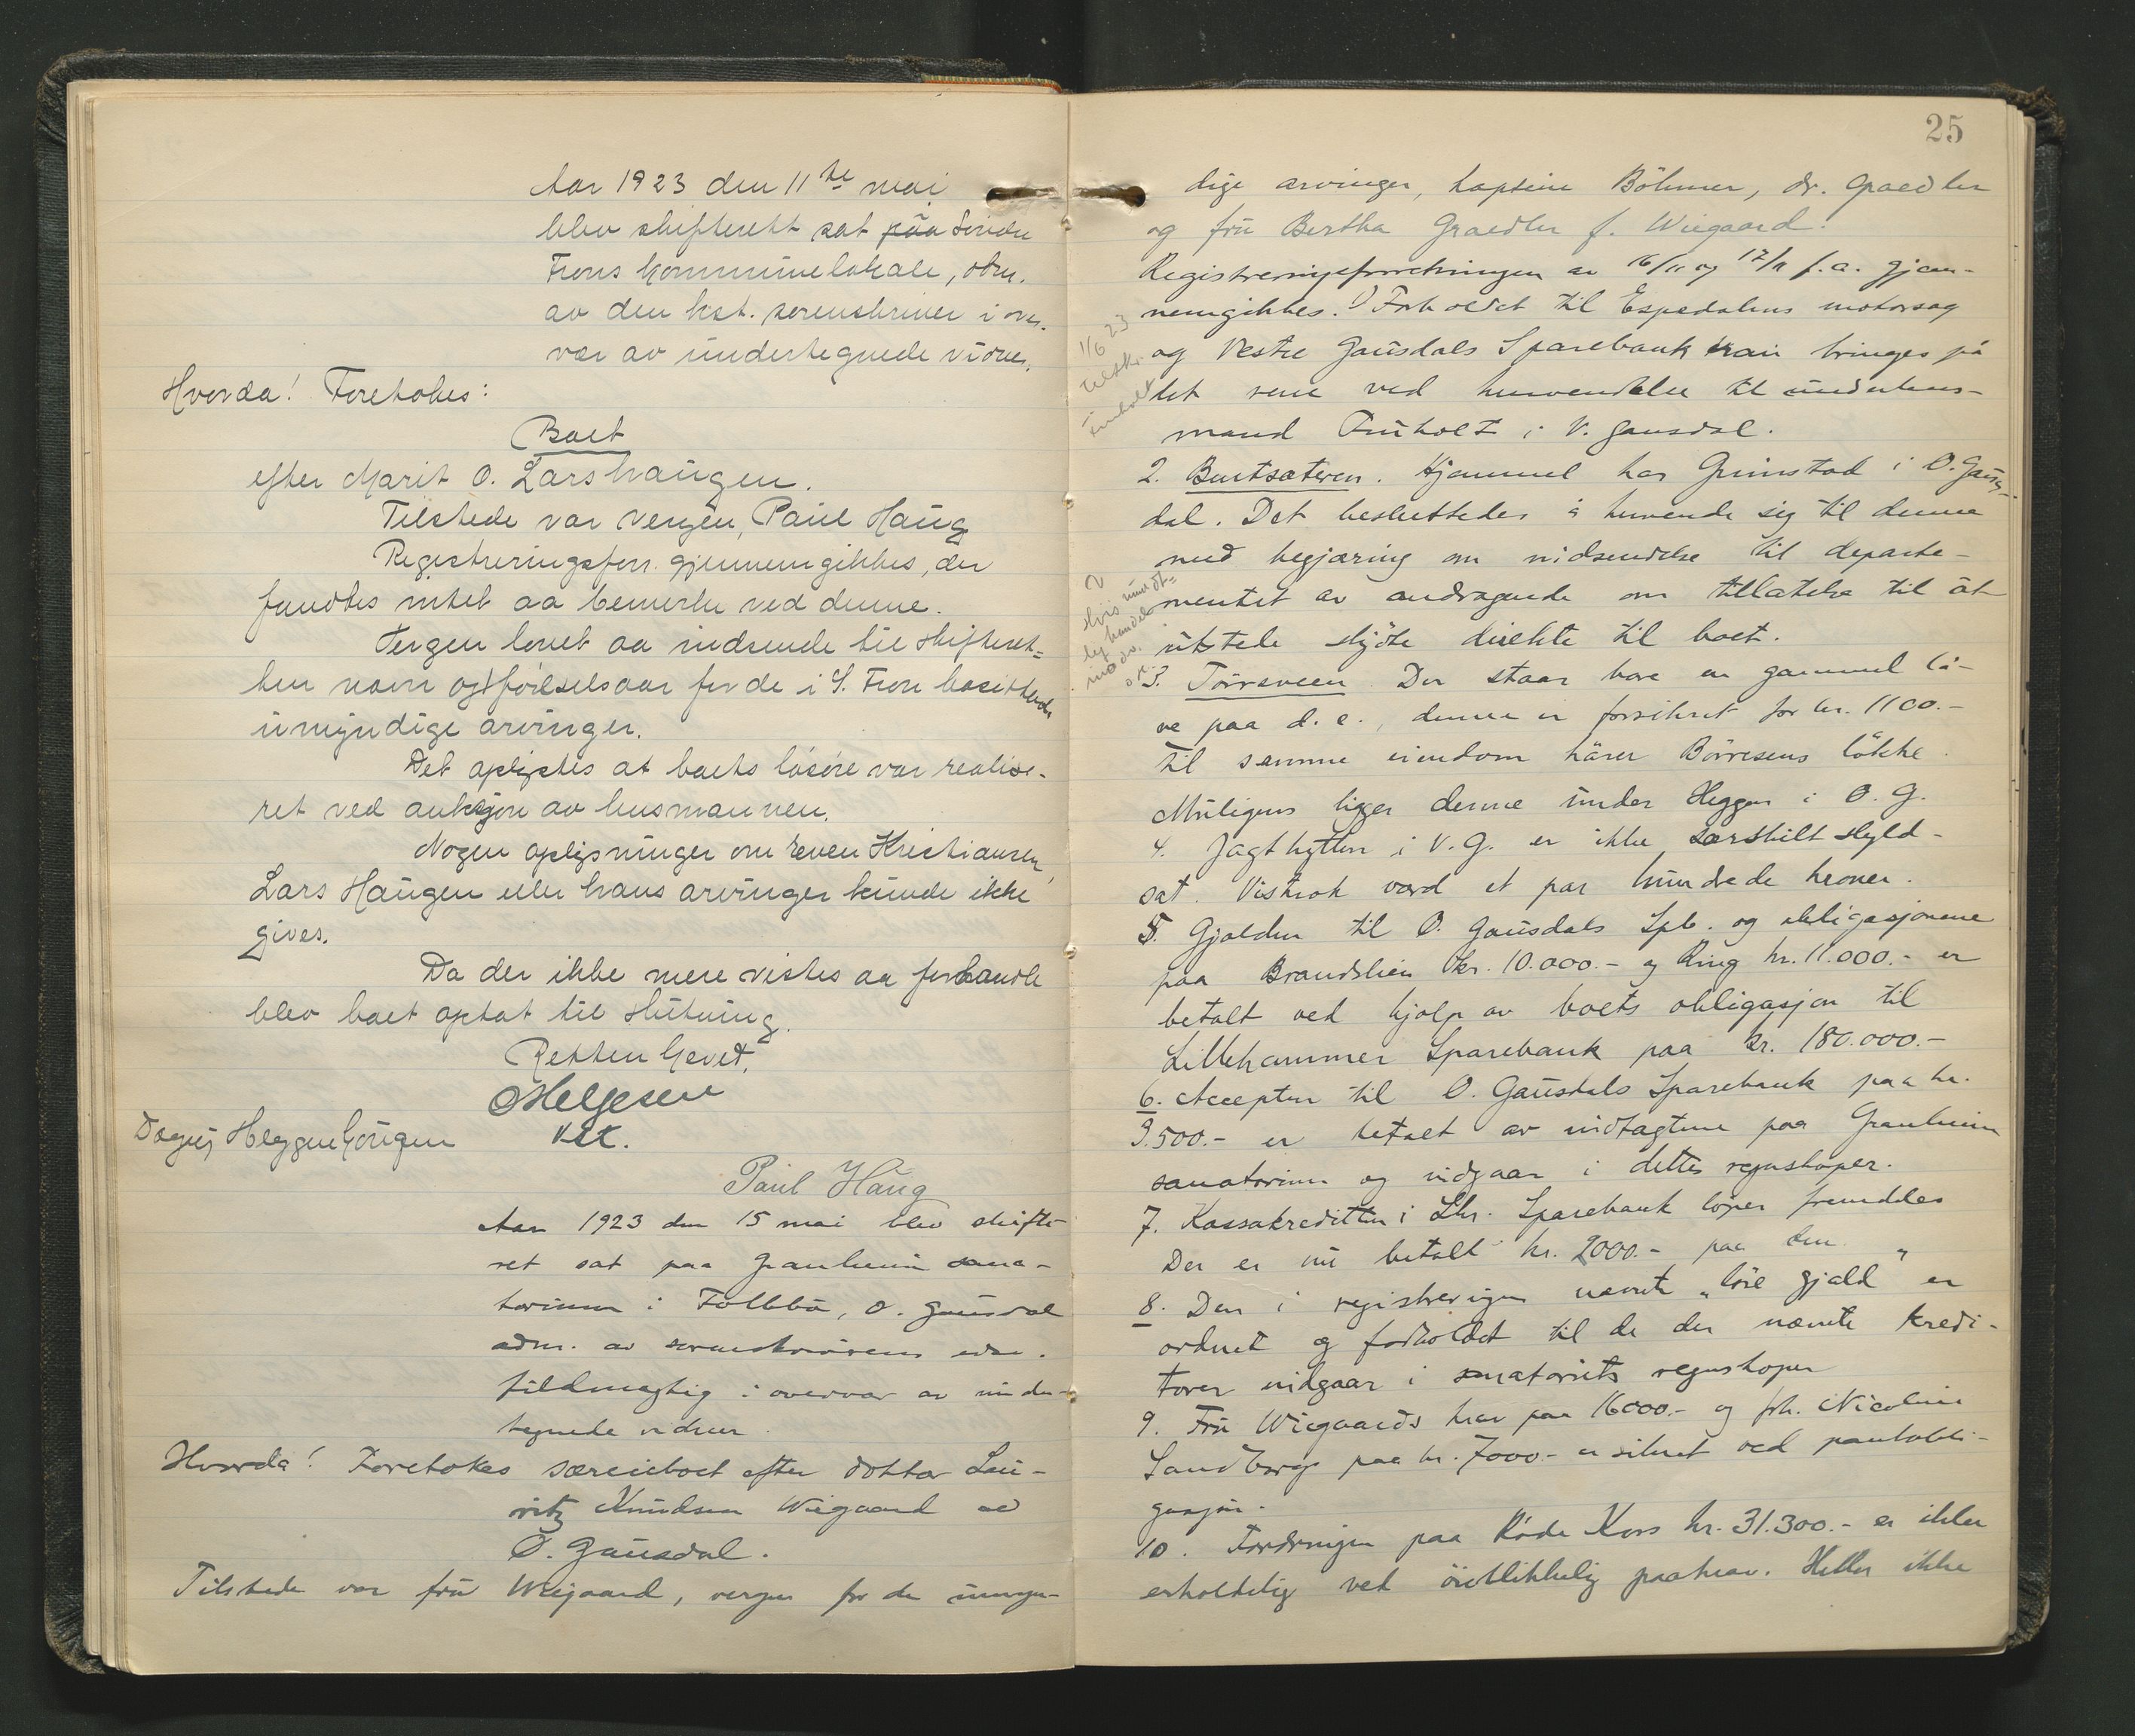 Aar 1923 den 11te mai
blev skifterett sat paa Søndre
Frons kommunelokale, adm.
av den kst. sorenskriver i over-
vær av undertegnede vidner.
Hvorda! Foretokes:
Boet
efter Marit O. Larshaugen.
Tilstede var vergen, Paul Haug
Registreringsforr. gjennemgikkes, der
fandtes intet aa bemerke ved denne.
Vergen lovet aa indsende til skifteret-
ten navn og fødselsaar for de i S. Fron bosittende
umyndige arvinger.
Det oplystes at boets løsøre var realise-
ret ved auksjon av lensmannen.
Nogen oplysninger om Even Kristiansen
Lars Haugen eller hans arvinger kunde ikke
gives.
Da der ikke mere vistes aa forhandle
blev boet optat til slutning.
Retten hevet.
OHelgesen
kst.
Dagny Heggenhougen
Paul Haug
Aar 1923 den 15 mai blev skifte-
ret sat paa Granheim sana-
torium i Follebu, Ø. Gausdal
adm. av sorenskriverens edsv.
fuldmægtig i overvær av under-
tegnede vidner.
Hvorda! Foretokes særeieboet efter doktor Lau-
ritz Knudsen Wiegaard av
Ø. Gausdal.
Tilstede var fru Wiegaard, vergen for de umyn-
25
dige arvinger, kaptein Böhmer, dr. Graedler
og fru Bertha Graedler f. Wiegaard.
Registreringsforretningen av 16/11 og 17/11 f.a. gjen-
nemgikkes. 1) Forholdet til Espedalens motorsag
og Vestre Gausdals Sparebank kan bringes på
det rene ved henvendelse til underlens-
mand Furholt i V. Gausdal.
2. Buatsæteren. Hjemmel har Grimstad i Ø. Gaus-
dal. Det besluttedes å henvende sig til denne
med begjæring om indsendelse til departe-
mentet av andragende om tillatelse til at
utstede skjøte direkte til boet.
3. Torsveen. Der staar bare en gammel lå-
ve paa d. e., denne er forsikret for kr. 1100.-
Til samme eiendom hører Børresens løkke
Muligens ligger denne under Heggen i Ø. G.
4. Jagthytten i V. G. er ikke særskilt skyld-
sat. Vistnok værd et par hundrede kroner.
5. Gjælden til Ø. Gausdals Spb. og obligasjonene
paa Brandslien kr. 10.000.- og Ring kr. 11.000.- er
betalt ved hjælp av boets obligasjon til
Lillehammer Sparebank paa kr. 180.000.-
6. Accepten til Ø. Gausdals Sparebank paa kr.
3.500.- er betalt av indtægtene paa Granheim
sanatorium og indgaar i dettes regnskaper.
7. Kassakreditten i Lhr. Sparebank løper fremdeles
Der er nu betalt kr. 2000.- paa den
8. Den i registreringen nævnte "løse gjæld" er
ordnet og forholdet til de der nævnte kredi-
torer indgaar i sanatoriets regnskaper
9. Fru Wiegaards krav paa 16000.- og frk. Nicoline
Sandbergs paa kr. 7000.- er sikret ved pantobli-
gasjon.
10. Fordringen paa Røde Kors kr. 31.300.- er ikke
erholdelig ved øieblikkelig paakrav. Heller ikke
1/6 23
tilskr.
Furholt
2
hvis mundt-
lig handel